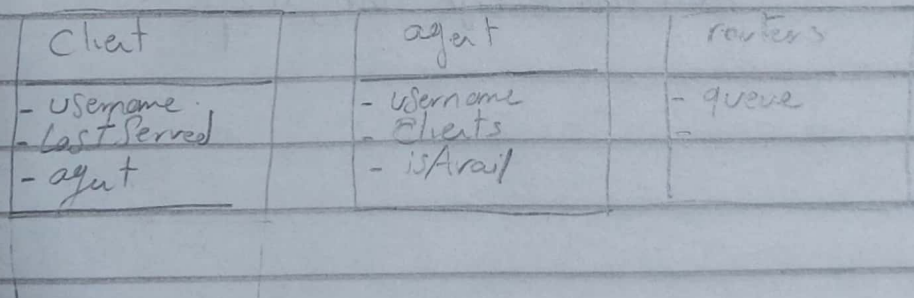 Client
- username
- Last Served
- agent
agent
- username
- Clients
- isAvail
routers
- queue
-